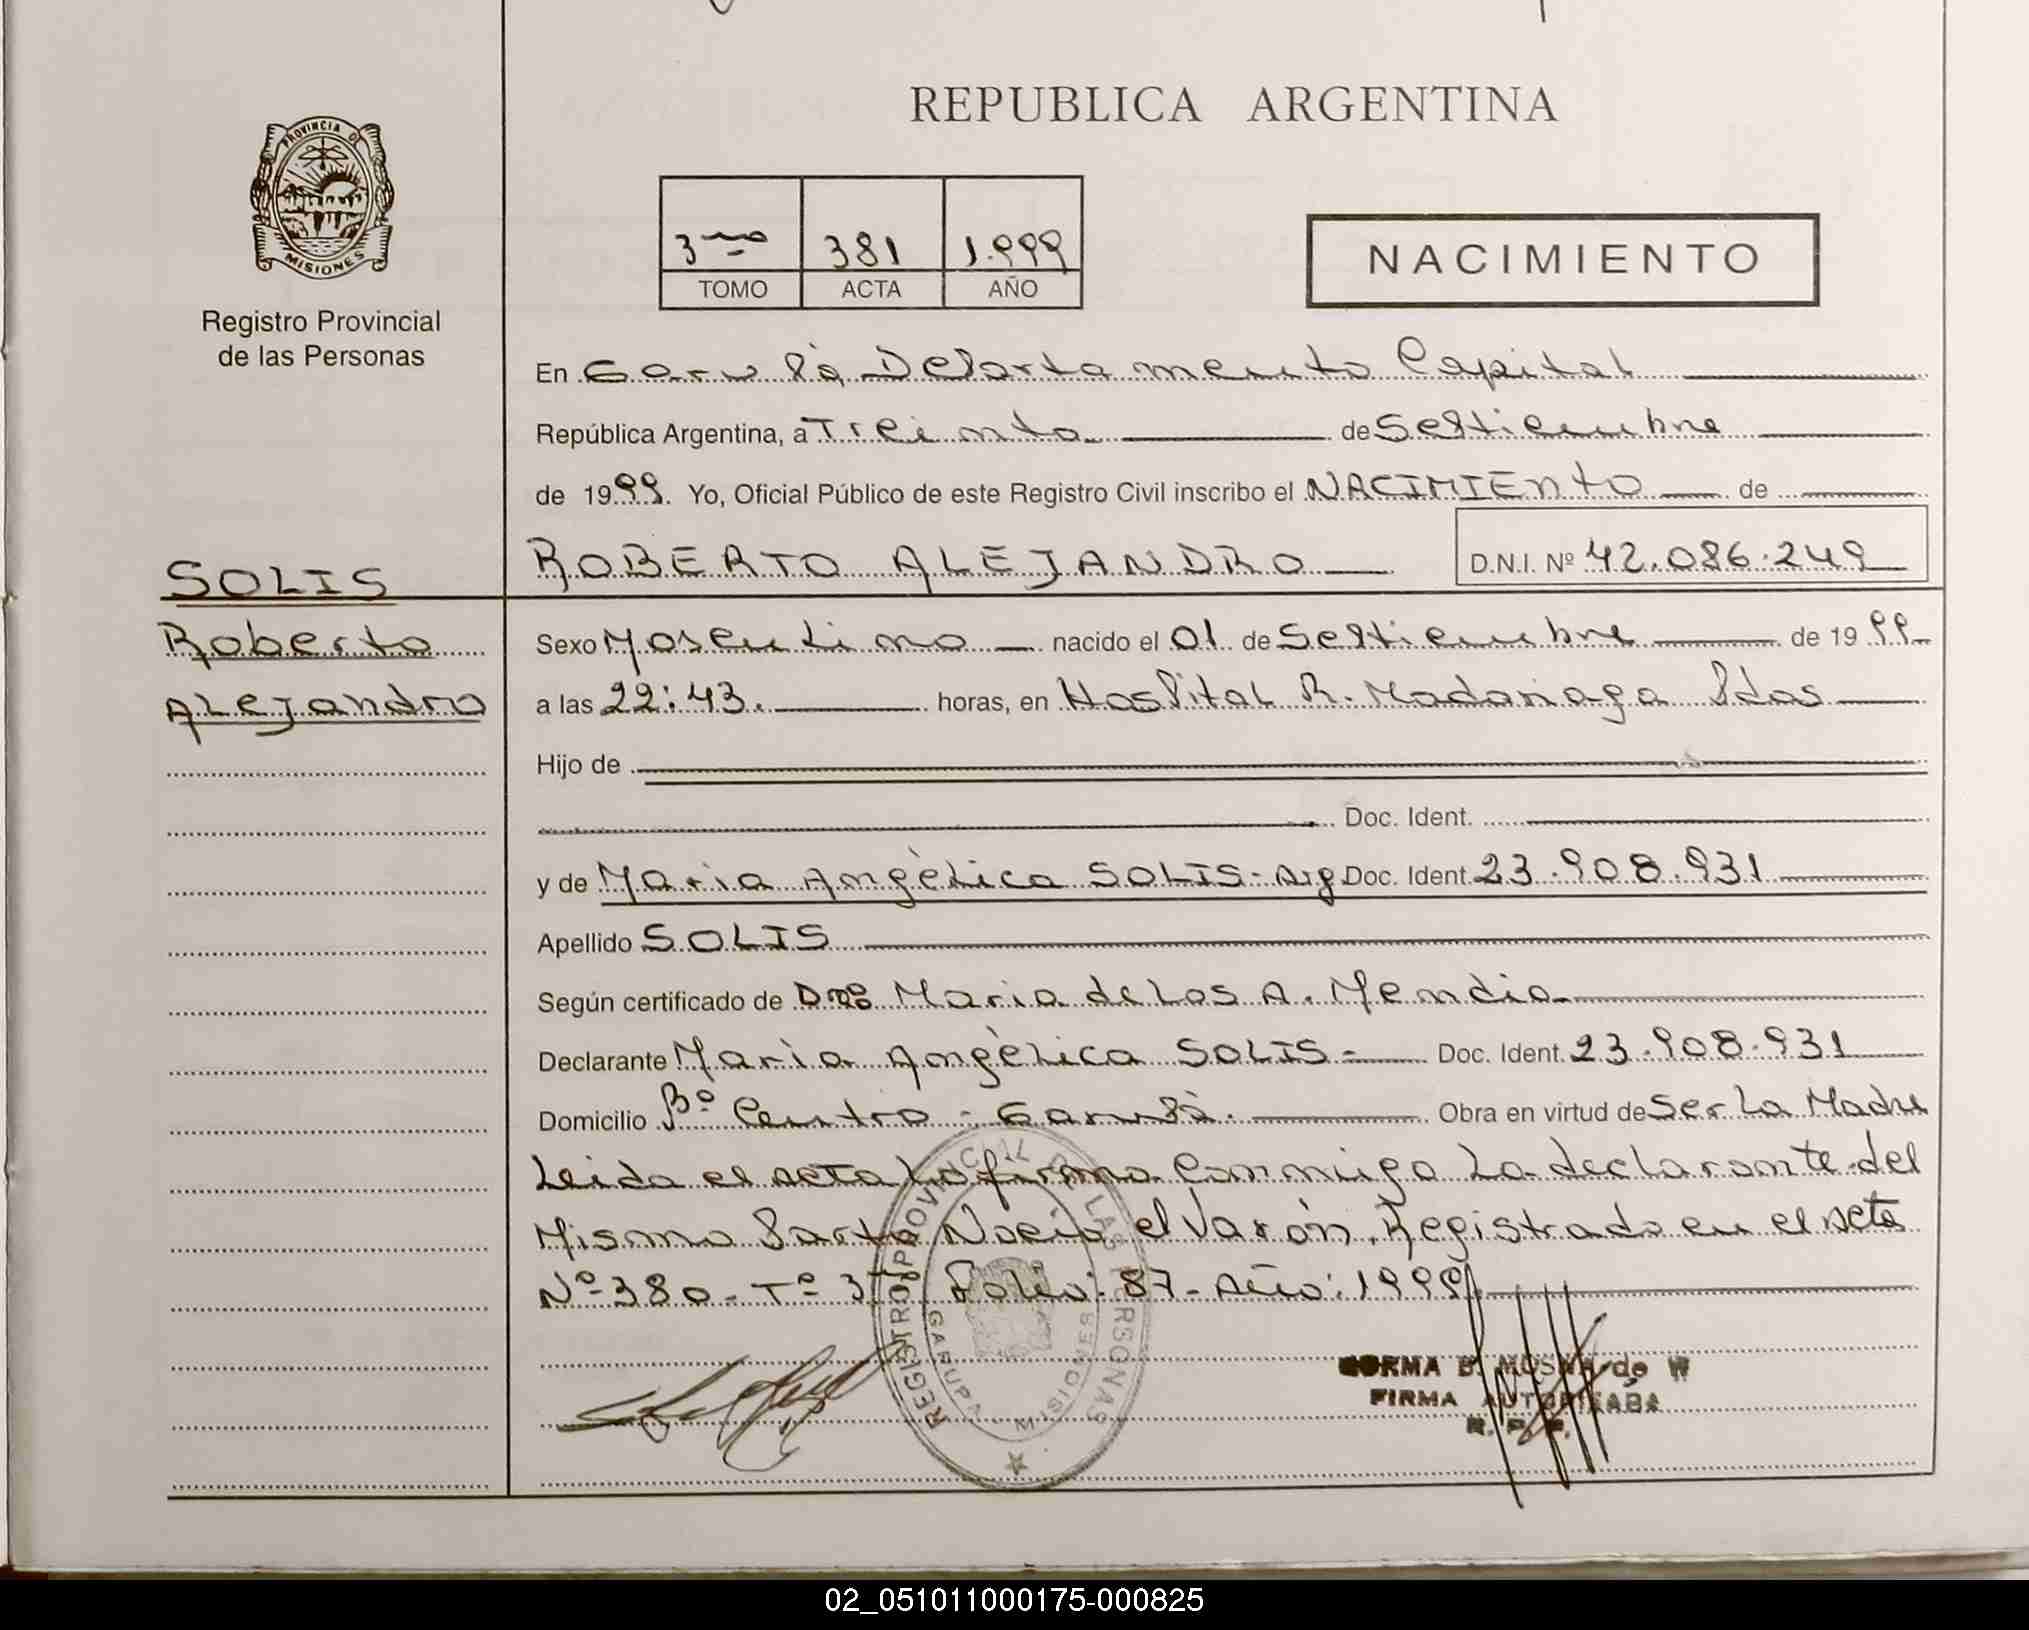 REPUBLICA ARGENTINA
PROVINCIA DE
MISIONES
Registro Provincial
de las Personas
3mo 381 1.999
TOMO ACTA AÑO
NACIMIENTO
En Garupà Departamento Capital
República Argentina, a Treinta de Septiembre
de 1999. Yo, Oficial Público de este Registro Civil inscribo el NACIMIENTO de
ROBERTO ALEJANDRO D.N.I. Nº 42.086.249
SOLIS
Roberto
Alejandro
Sexo Masculino nacido el 01 de Septiembre de 1999
a las 22:43. horas, en Hospital R. Madariaga Pdas
Hijo de
Doc. Ident.
y de Maria Angèlica SOLIS - Arg Doc. Ident. 23.908.931
Apellido SOLIS
Según certificado de Dra Maria de Los A. Mendia
Declarante Marìa Angèlica SOLIS - Doc. Ident. 23.908.931
Domicilio Bº Centro - Garupà. Obra en virtud de Ser La Madre
Leida el acta La firma Conmigo La declarante. del
Mismo Parto Naciò el Varón, Registrado en el acta
Nº 380 - Tº 3º Folio: 87 - Año: 1999
REGISTRO PROVINCIAL DE LAS PERSONAS
GARUPA MISIONES
NORMA B. MOSNA de W
FIRMA AUTORIZADA
R. P. P.
02_051011000175-000825